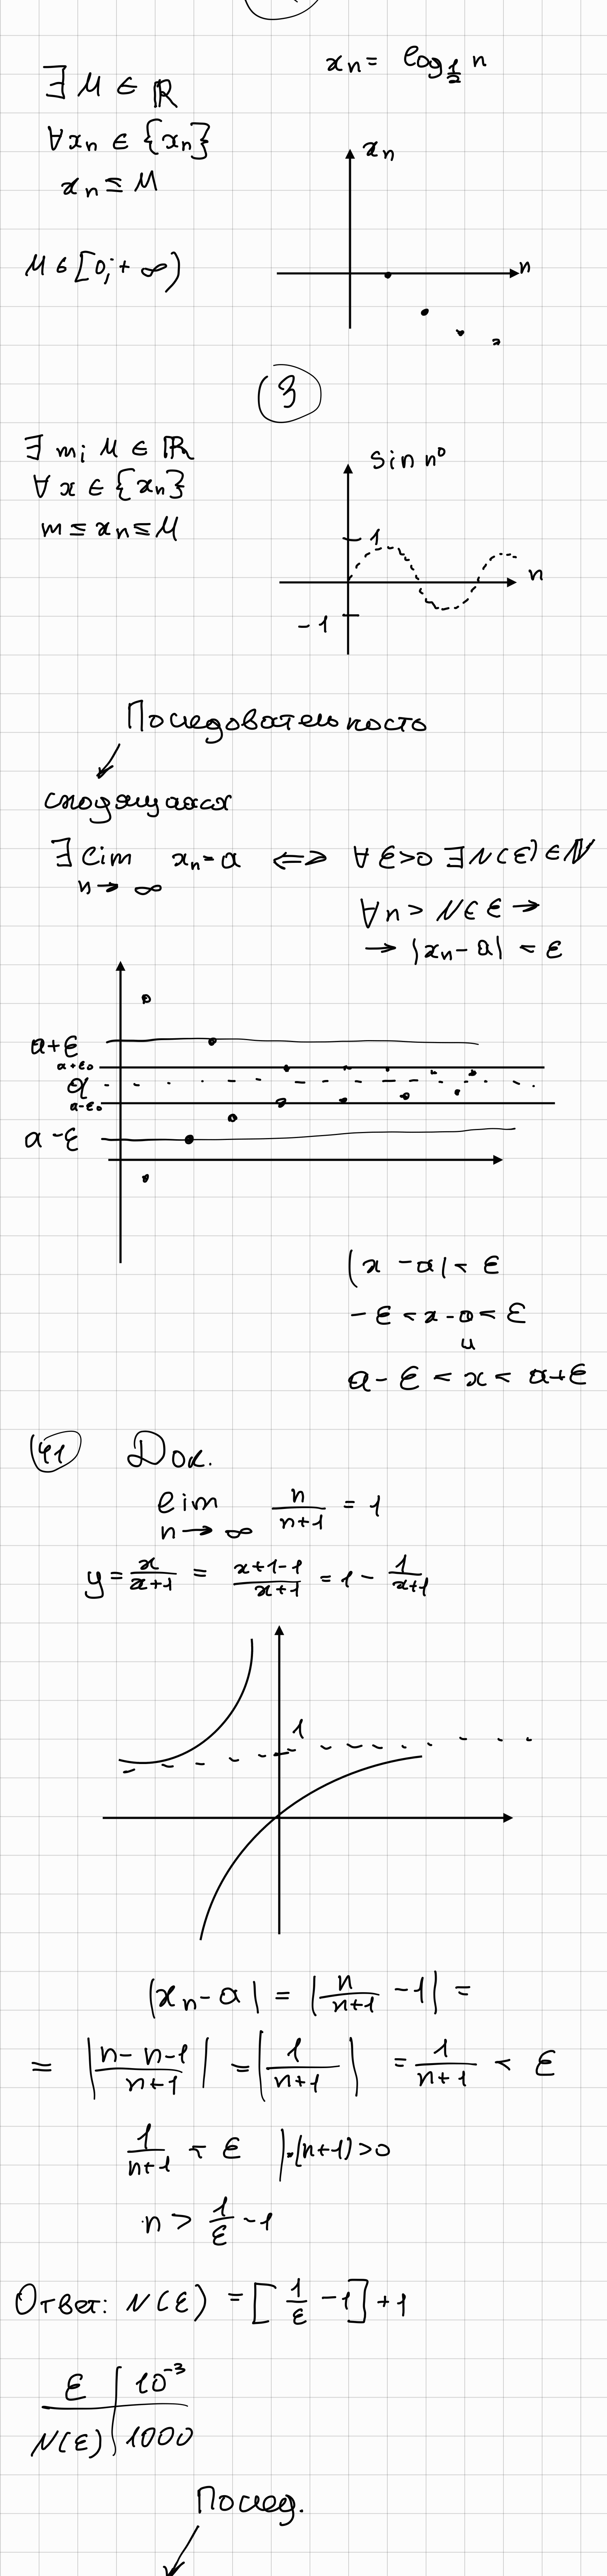 ∃ M ∈ ℝ
x_n = log_{1/2} n
∀ x_n ∈ {x_n}
x_n ≤ M
M ∈ [0; +∞)
x_n
n
3
∃ m; M ∈ ℝ
∀ x ∈ {x_n}
m ≤ x_n ≤ M
sin n°
1
n
-1
Последовательность
сходящаяся
∃ lim_{n → ∞} x_n = a ⟺ ∀ ε > 0 ∃ N(ε) ∈ ℕ
∀ n > N(ε →
→ |x_n - a| < ε
a+ε
a+ε₀
a
a-ε₀
a-ε
|x - a| < ε
-ε < x - a < ε
a - ε < x < a + ε
41 Док.
lim_{n → ∞} n/(n+1) = 1
y = x/(x+1) = (x+1-1)/(x+1) = 1 - 1/(x+1)
1
|x_n - a| = |n/(n+1) - 1| =
= |(n-n-1)/(n+1)| = |1/(n+1)| = 1/(n+1) < ε
1/(n+1) < ε |·(n+1)>0
n > 1/ε - 1
Ответ: N(ε) = [1/ε - 1] + 1
ε | 10^{-3}
N(ε) | 1000
Послед.